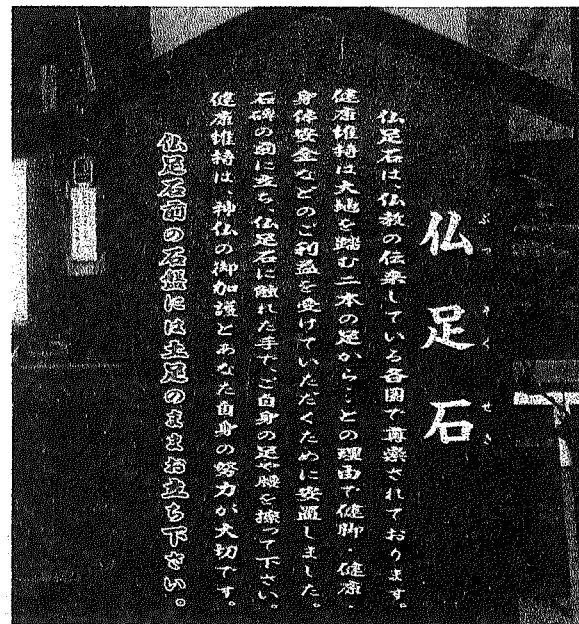 仏足石
ぶっそくせき
仏足石は、仏教の伝来している各国で尊崇されております。
健康維持は大地を踏む二本の足から…との理由で健脚・健康・
身体安全などのご利益を受けていただくために安置しました。
石碑の前に立ち、仏足石に触れた手で、ご自身の足や腰を擦って下さい。
健康維持は、神仏の御加護とあなた自身の努力が大切です。
仏足石前の石盤には土足のままお立ち下さい。